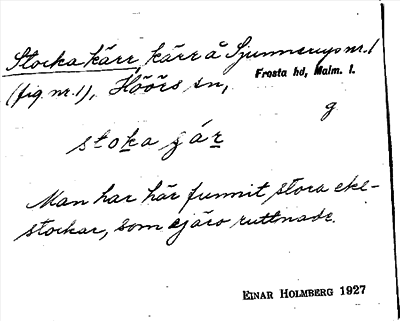 Stocka kärr, kärr å Sjunnerup nr. 1
(fig nr. 1), Höörs sn,
Frosta hd, Malm. l.
g
stoka ʒár
Man har här funnit stora eke-
stockar, som ejäro ruttnade.
EINAR HOLMBERG 1927